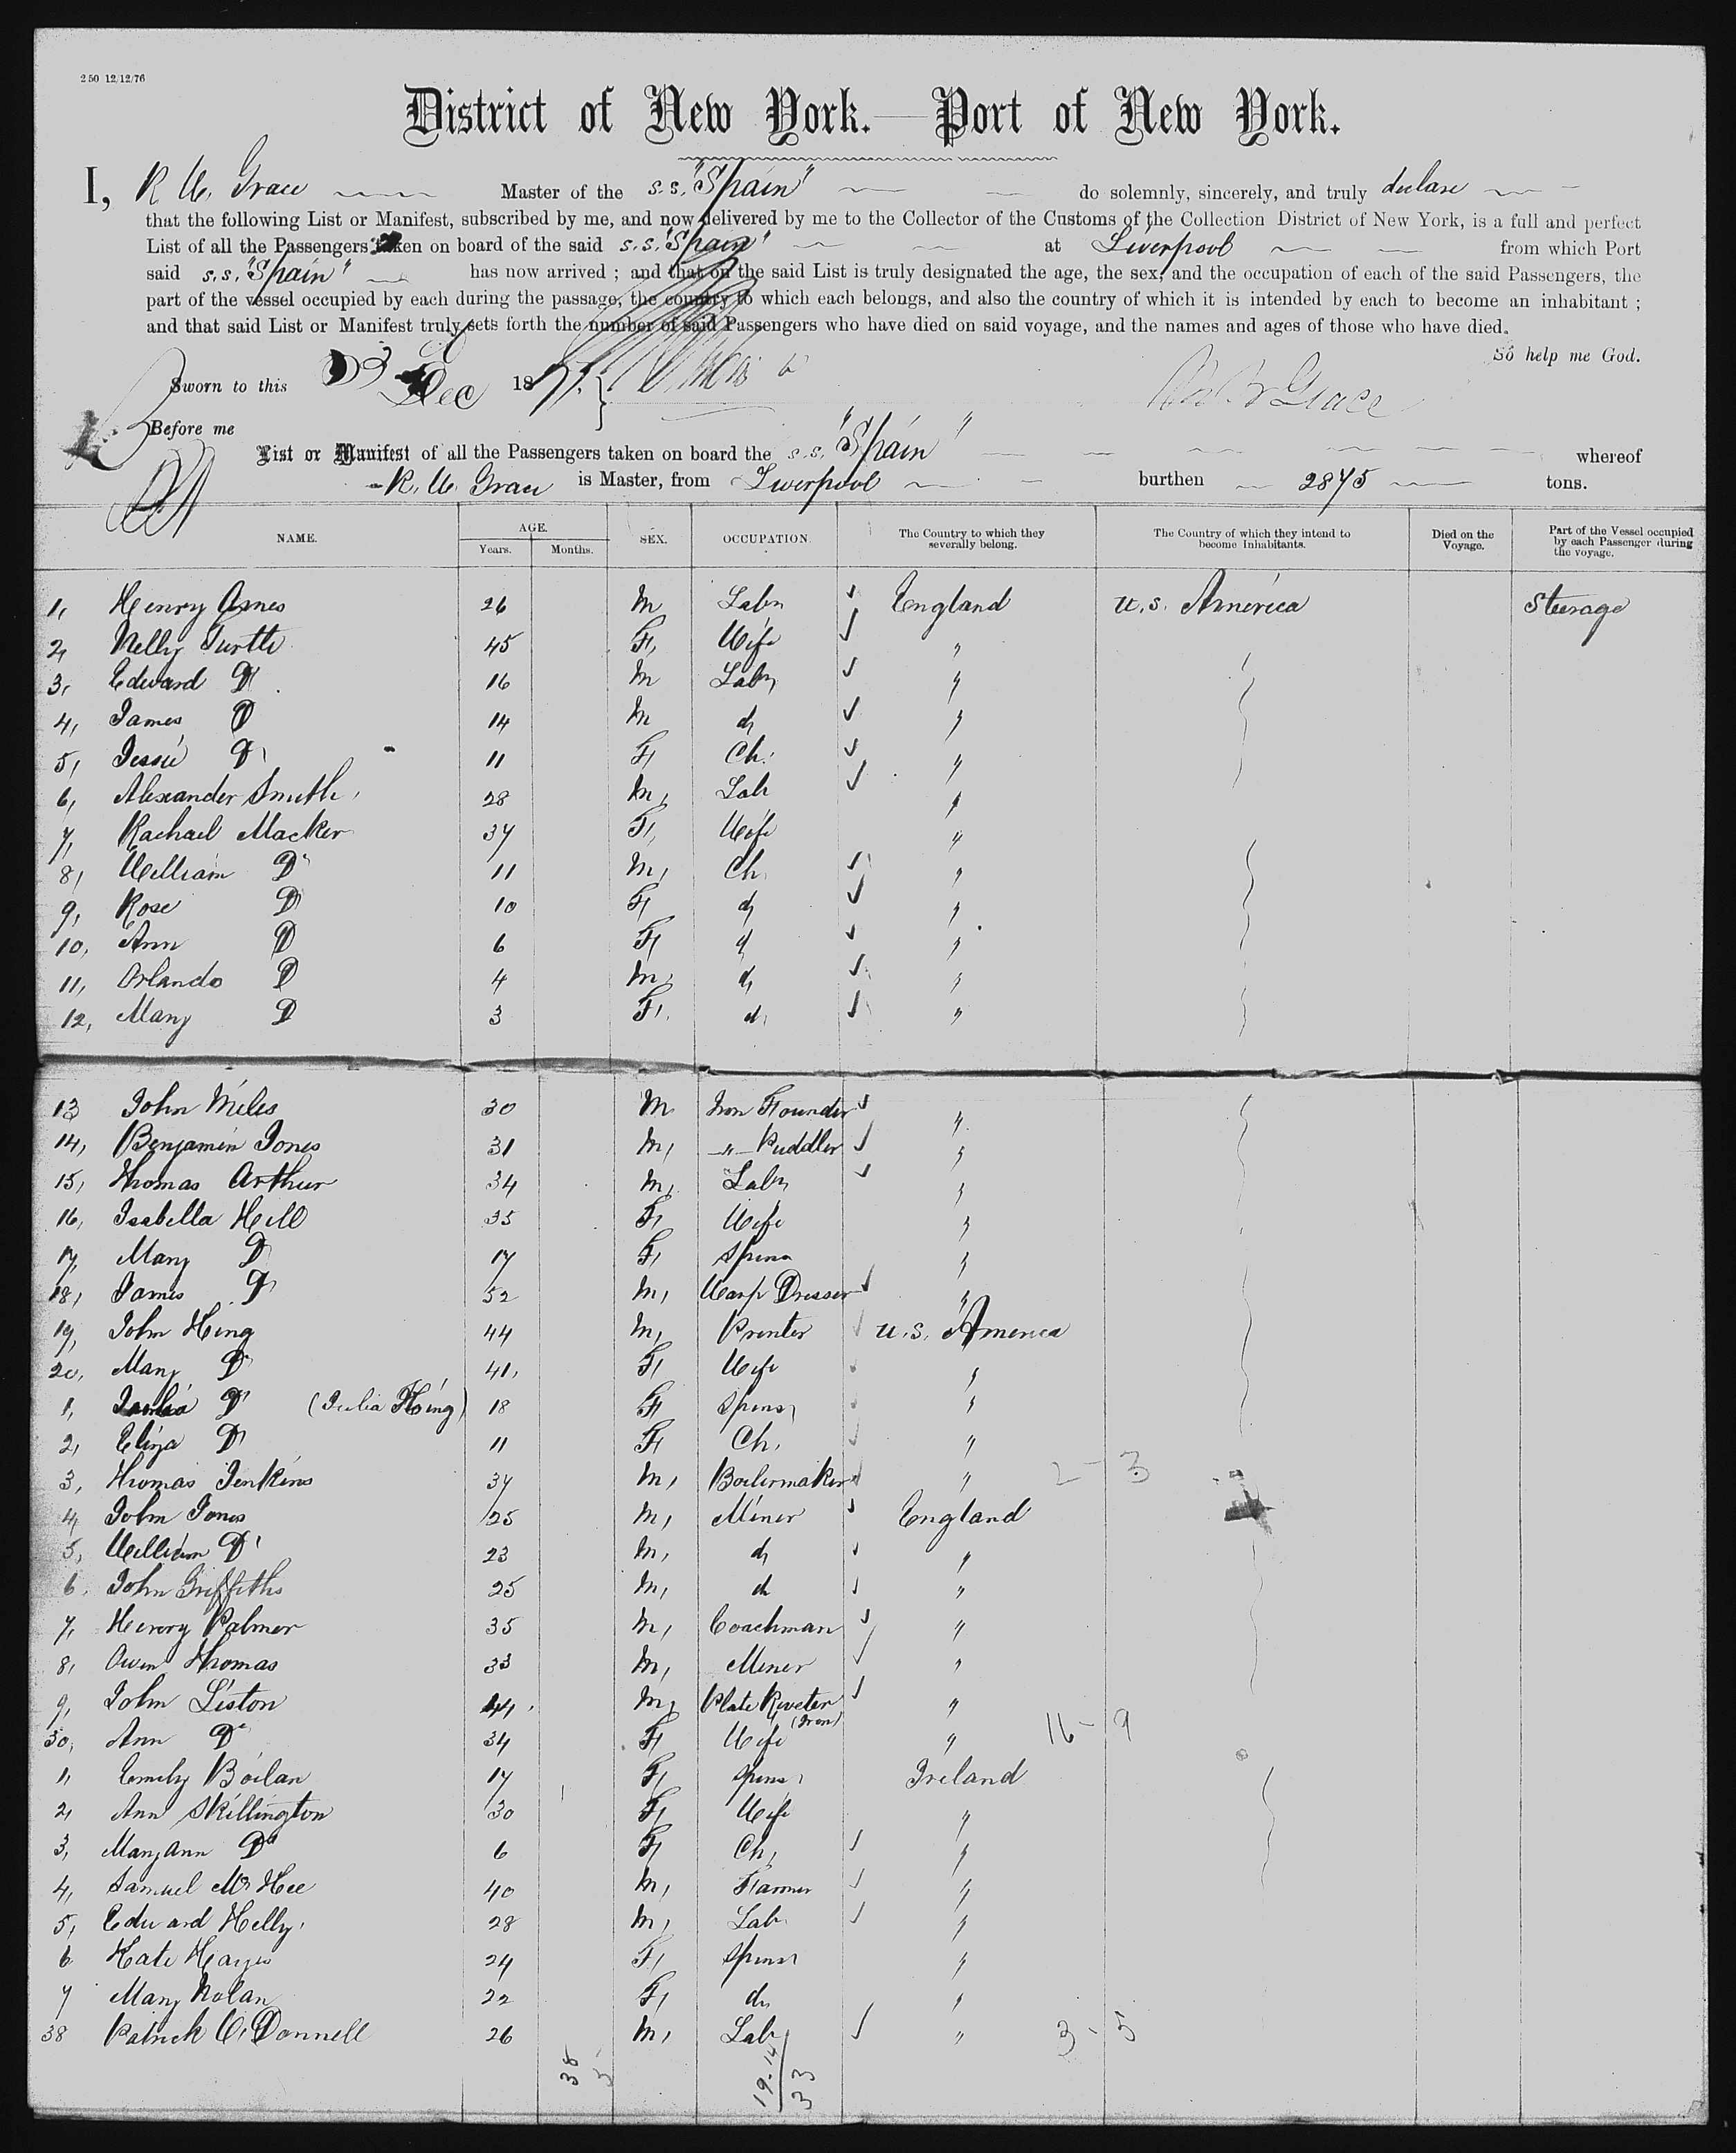 250 12/12/76
District of New York.—Port of New York.
I, R. W. Grace Master of the s.s. "Spain" do solemnly, sincerely, and truly declare
that the following List or Manifest, subscribed by me, and now delivered by me to the Collector of the Customs of the Collection District of New York, is a full and perfect
List of all the Passengers taken on board of the said s.s. "Spain" at Liverpool from which Port
said s.s. "Spain" has now arrived ; and that on the said List is truly designated the age, the sex, and the occupation of each of the said Passengers, the
part of the vessel occupied by each during the passage, the country to which each belongs, and also the country of which it is intended by each to become an inhabitant ;
and that said List or Manifest truly sets forth the number of said Passengers who have died on said voyage, and the names and ages of those who have died.
So help me God.
Sworn to this Dec 1877. Grace
Before me
List or Manifest of all the Passengers taken on board the s.s. "Spain" whereof
R. W. Grace is Master, from Liverpool burthen 2875 tons.
NAME. AGE. Years. Months. SEX. OCCUPATION. The Country to which they severally belong. The Country of which they intend to become Inhabitants. Died on the Voyage. Part of the Vessel occupied by each Passenger during the voyage.
1, Henry 26 M Labr England U.S. America Steerage
2, Nelly Turtle 45 F, Wife "
3, Edward Do 16 M Labr "
4, James Do 14 M do "
5, Jessie Do 11 F Ch. "
6, Alexander Smith 28 M, Lab "
7, Rachael Macker 37 F, Wife "
8, William Do 11 M, Ch "
9, Rose Do 10 F do "
10, Ann Do 6 F do "
11, Orlando Do 4 M, do "
12, Mary Do 3 F. do "
13 John Miles 30 M Iron Founder "
14, Benjamin Jones 31 M, -"- Puddler "
15, Thomas Arthur 34 M, Labr "
16, Isabella Hill 35 F, Wife "
17, Mary Do 17 F, Spins "
18, James Do 52 M, Warp Dresser "
19, John King 44 M, Printer U.S. America
20, Mary Do 41, F, Wife "
1, Do (Julia King) 18 F Spinsr "
2, Eliza Do 11 F Ch. "
3, Thomas Jenkins 37 M, Boilermaker " 2 - 3
4, John Jones 25 M, Miner England
5, William Do 23 M, do "
6, John Griffiths 25 M, do "
7, Henry Palmer 35 M, Coachman "
8, Owen Thomas 33 M, Miner "
9, John Liston 44, M, Plate Riveter (Iron) "
30, Ann Do 34 F, Wife " 16 - 9
1, Emily Boilan 17 F, Spinsr Ireland
2, Ann Skillington 30 F, Wife "
3, Maryann Do 6 F, Ch, "
4, Samuel McKee 40 M, Farmer "
5, Edward Kelly 28 M, Lab "
6 Kate Hayes 24 F, Spinsr "
7 Mary Nolan 22 F, do "
38 Patrick O'Donnell 26 M, Lab " 3 - 5
38 5 19.14 33